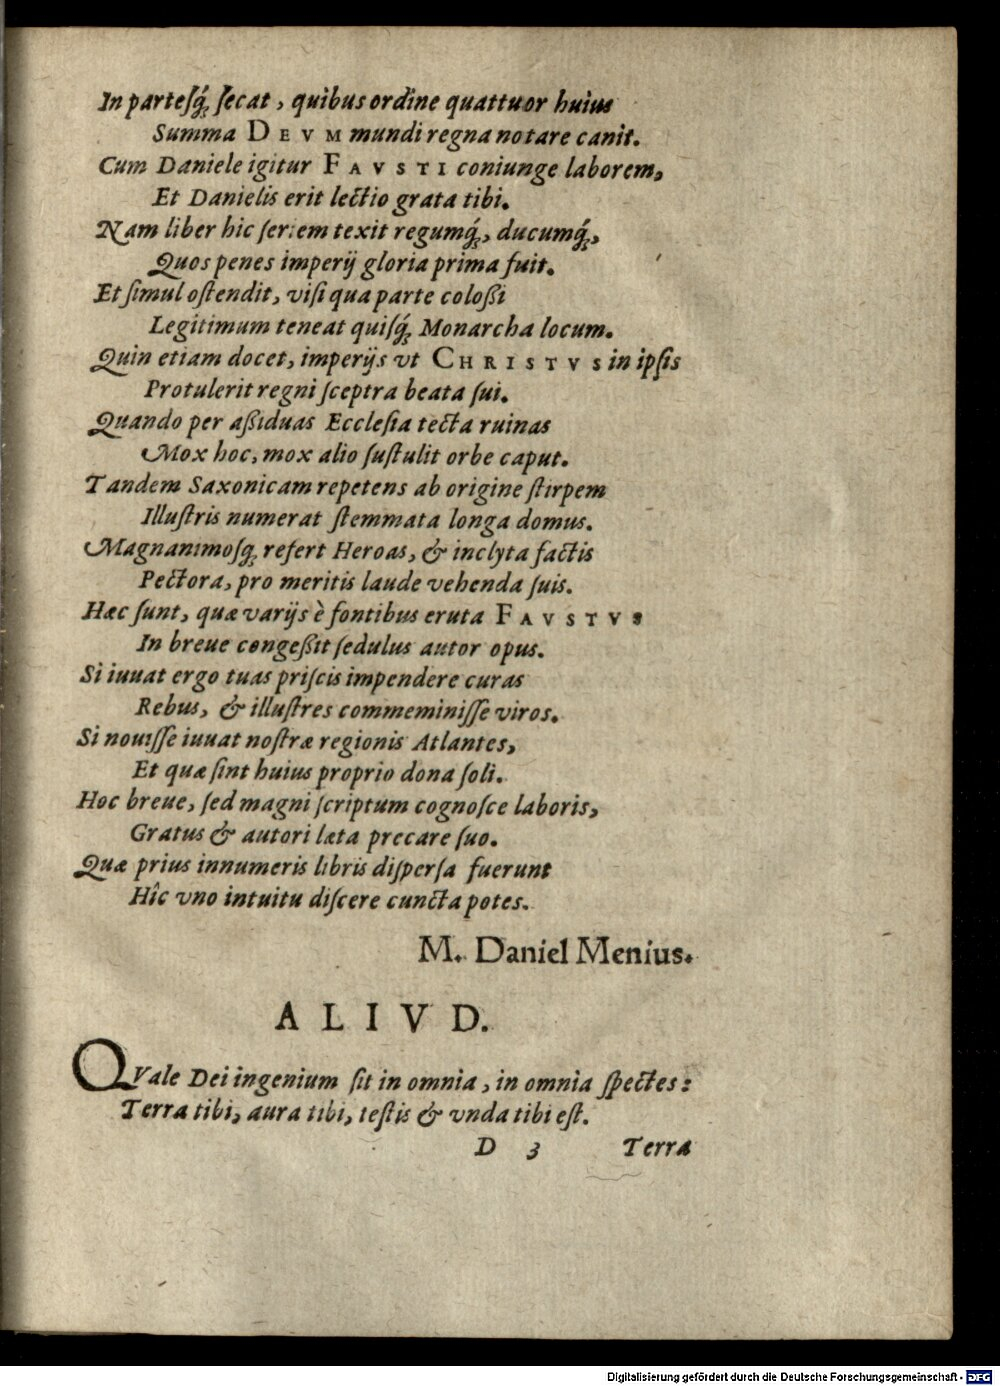 In parteſq́; ſecat, quibus ordine quattuor huius
Summa DEVM mundi regna notare canit.
Cum Daniele igitur FAVSTI coniunge laborem,
Et Danielis erit lectio grata tibi.
Nam liber hic ſeriem texit regumq́;, ducumq́;,
Quos penes imperij gloria prima fuit.
Et ſimul oſtendit, viſi qua parte coloßi
Legitimum teneat quiſq́; Monarcha locum.
Quin etiam docet, imperijs vt CHRISTVS in ipſis
Protulerit regni ſceptra beata ſui.
Quando per aßiduas Eccleſia tecta ruinas
Mox hoc, mox alio ſuſtulit orbe caput.
Tandem Saxonicam repetens ab origine ſtirpem
Illuſtris numerat ſtemmata longa domus.
Magnanimoſq; refert Heroas, & inclyta factis
Pectora, pro meritis laude vehenda ſuis.
Hæc ſunt, quæ varijs è fontibus eruta FAVSTVS
In breue congeßit ſedulus autor opus.
Si iuuat ergo tuas priſcis impendere curas
Rebus, & illuſtres commeminiſſe viros.
Si nouiſſe iuuat noſtræ regionis Atlantes,
Et quæ ſint huius proprio dona ſoli.
Hoc breue, ſed magni ſcriptum cognoſce laboris,
Gratus & autori læta precare ſuo.
Quæ prius innumeris libris diſperſa fuerunt
Hîc vno intuitu diſcere cuncta potes.
M. Daniel Menius.
ALIVD.
QVale Dei ingenium ſit in omnia, in omnia ſpectes:
Terra tibi, aura tibi, teſtis & vnda tibi eſt.
D 3 Terra
Digitalisierung gefördert durch die Deutsche Forschungsgemeinschaft - DFG